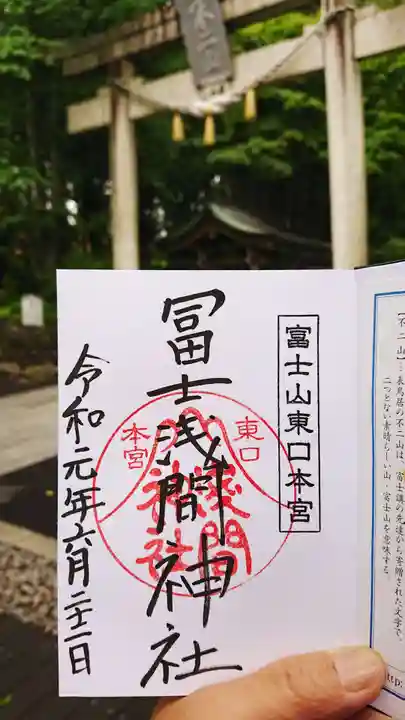 不二山
富士山東口本宮
冨士浅間神社
令和元年六月二十二日
東口
本宮
浅間
神社
【不二山】…表鳥居の不二山は、富士講の先達から寄贈された文字で、
二つとない素晴らしい山・富士山を意味する。
http: